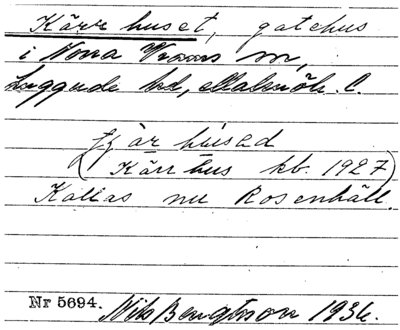 Kärr huset, gatehus
i Norra Vrams sn,
Luggude hd, Malmöh. l.
kjär húsəd
(Kärrhus kb. 1927)
Kallas nu Rosenhäll.
Nr 5694. Nils Bengtsson 1936.